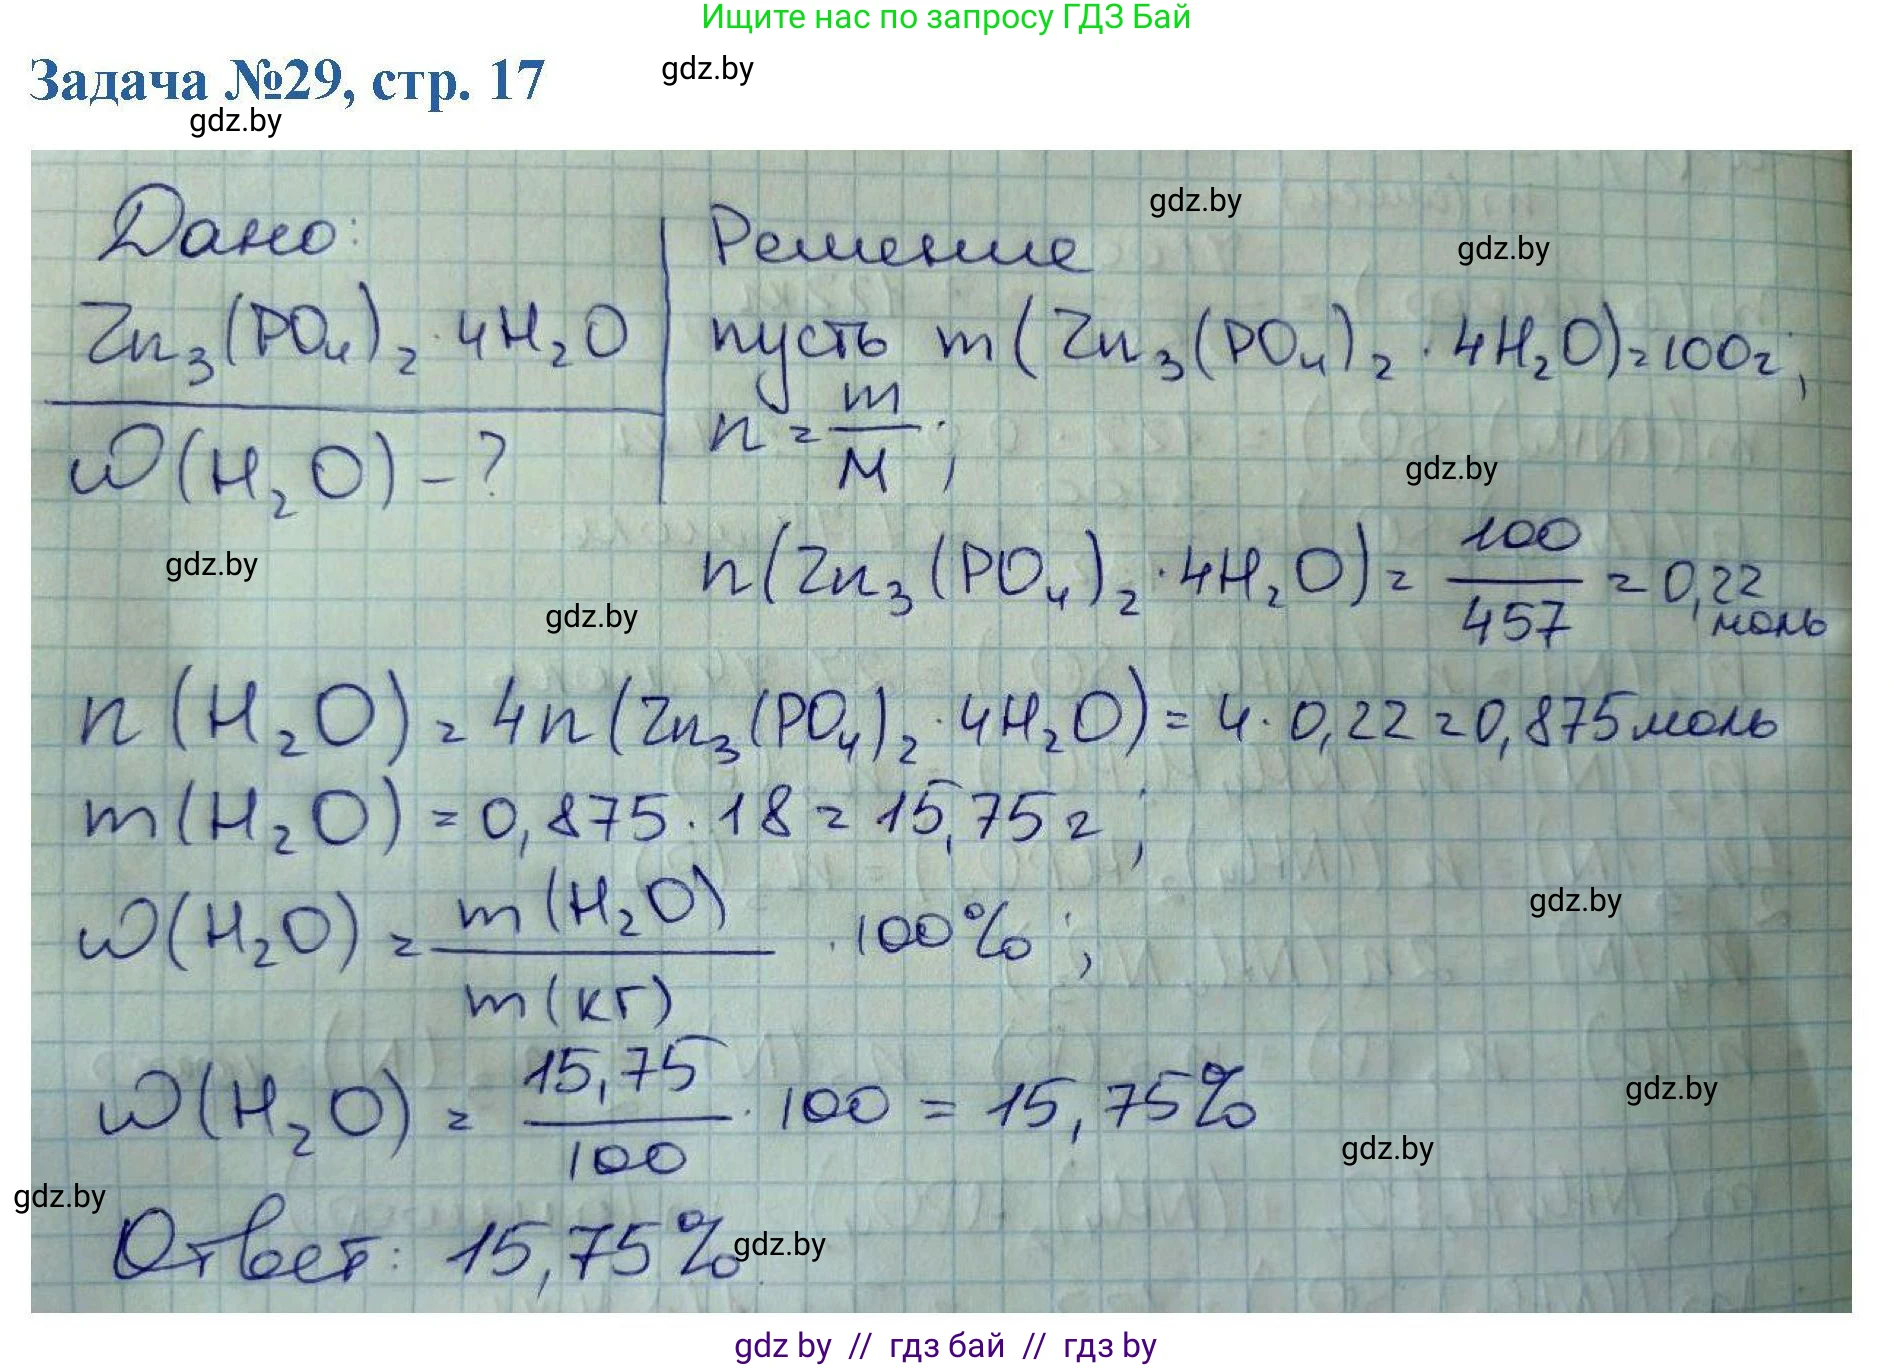 Ищите нас по запросу ГДЗ Бай
Задача №29, стр. 17
gdz.by
gdz.by
Дано:
Zn₃(PO₄)₂·4H₂O
ω(H₂O) – ?
Решение
gdz.by
gdz.by
пусть m(Zn₃(PO₄)₂·4H₂O)=100г;
n = m/M;
gdz.by
gdz.by
gdz.by
n(Zn₃(PO₄)₂·4H₂O) = 100/457 = 0,22 моль
n(H₂O) = 4n(Zn₃(PO₄)₂·4H₂O) = 4·0,22=0,875моль
m(H₂O) = 0,875·18=15,75г;
ω(H₂O) = m(H₂O)/m(кг) ·100%;
gdz.by
ω(H₂O) = 15,75/100 · 100 = 15,75%
gdz.by
gdz.by
gdz.by
Ответ: 15,75%
gdz.by
gdz by // гдз бай // гдз by